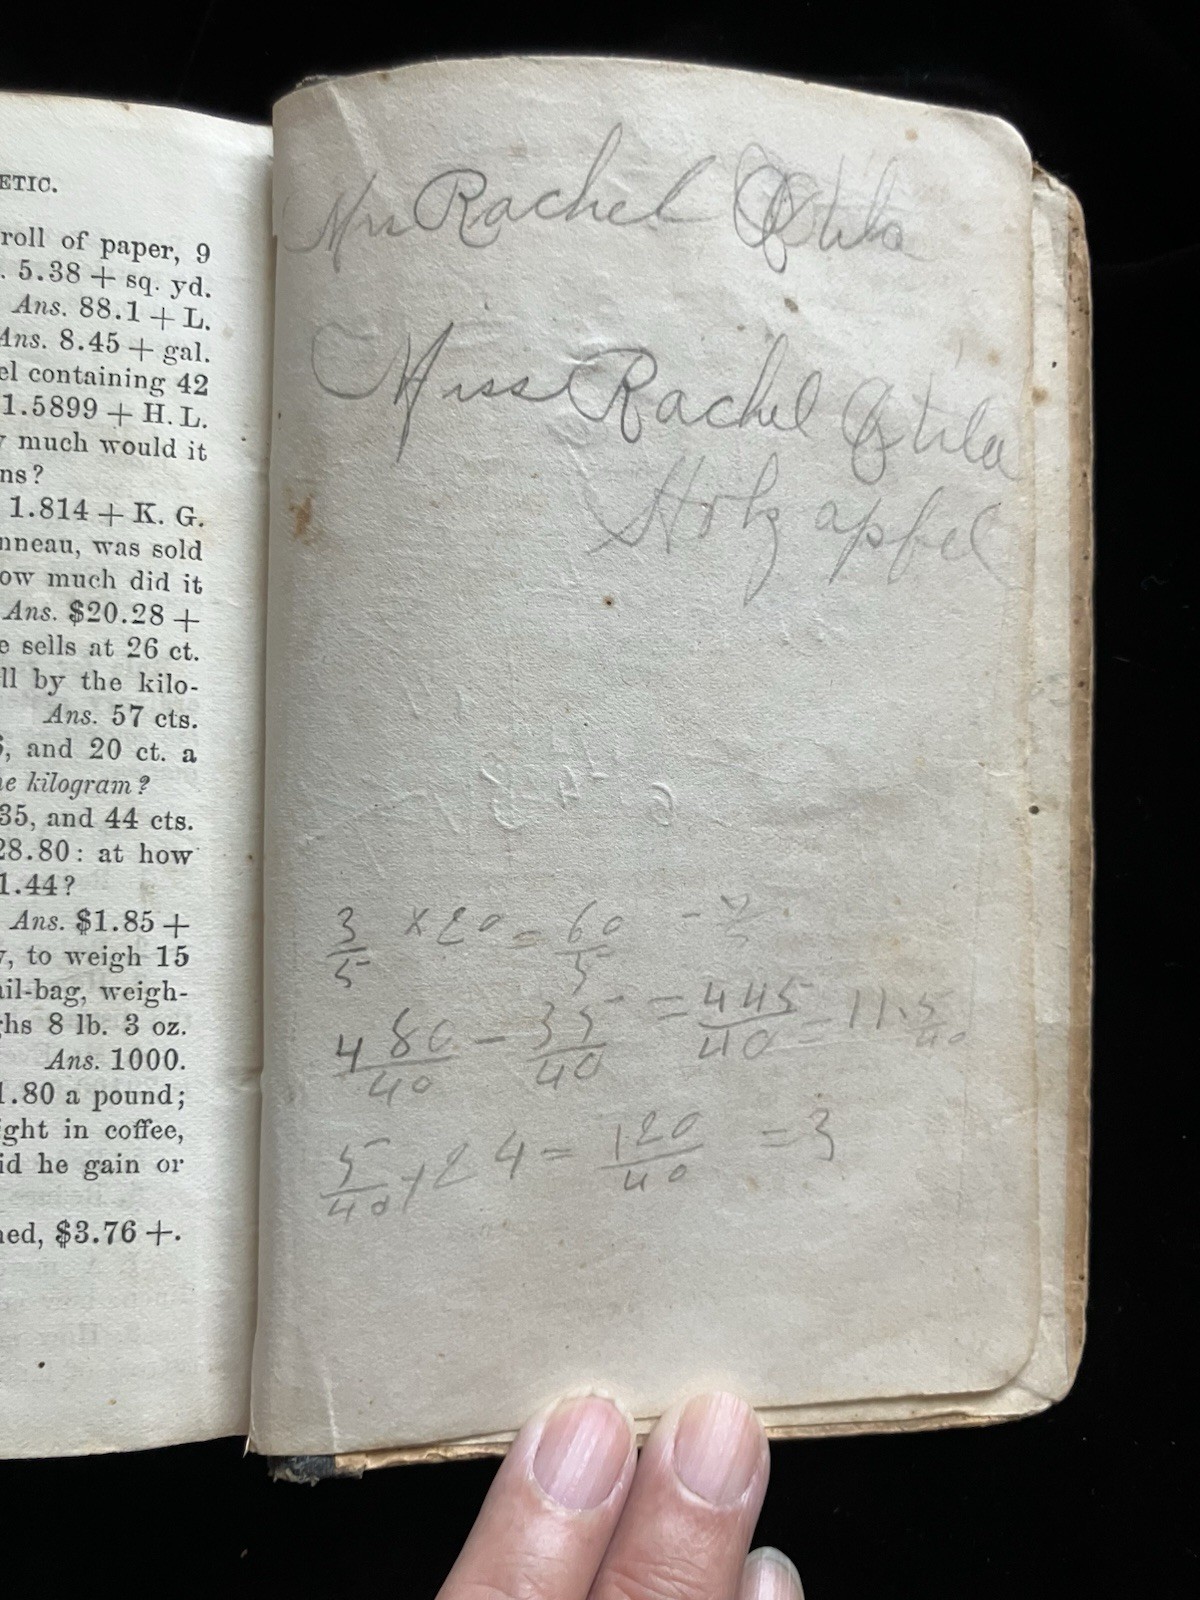 ETIC.
roll of paper, 9
. 5.38 + sq. yd.
Ans. 88.1 + L.
Ans. 8.45 + gal.
el containing 42
1.5899 + H. L.
much would it
ns?
1.814 + K. G.
nneau, was sold
ow much did it
Ans. $20.28 +
e sells at 26 ct.
ll by the kilo-
Ans. 57 cts.
, and 20 ct. a
e kilogram?
35, and 44 cts.
28.80: at how
1.44?
Ans. $1.85 +
, to weigh 15
ail-bag, weigh-
ghs 8 lb. 3 oz.
Ans. 1000.
1.80 a pound;
ight in coffee,
id he gain or
ned, $3.76 +.
Mrs Rachel Otila
Miss Rachel Otila
Holzapfel
3/5 × 20 = 60/5
480/40 - 35/40 = 445/40 = 11.5/40
5/40 × 24 = 120/40 = 3